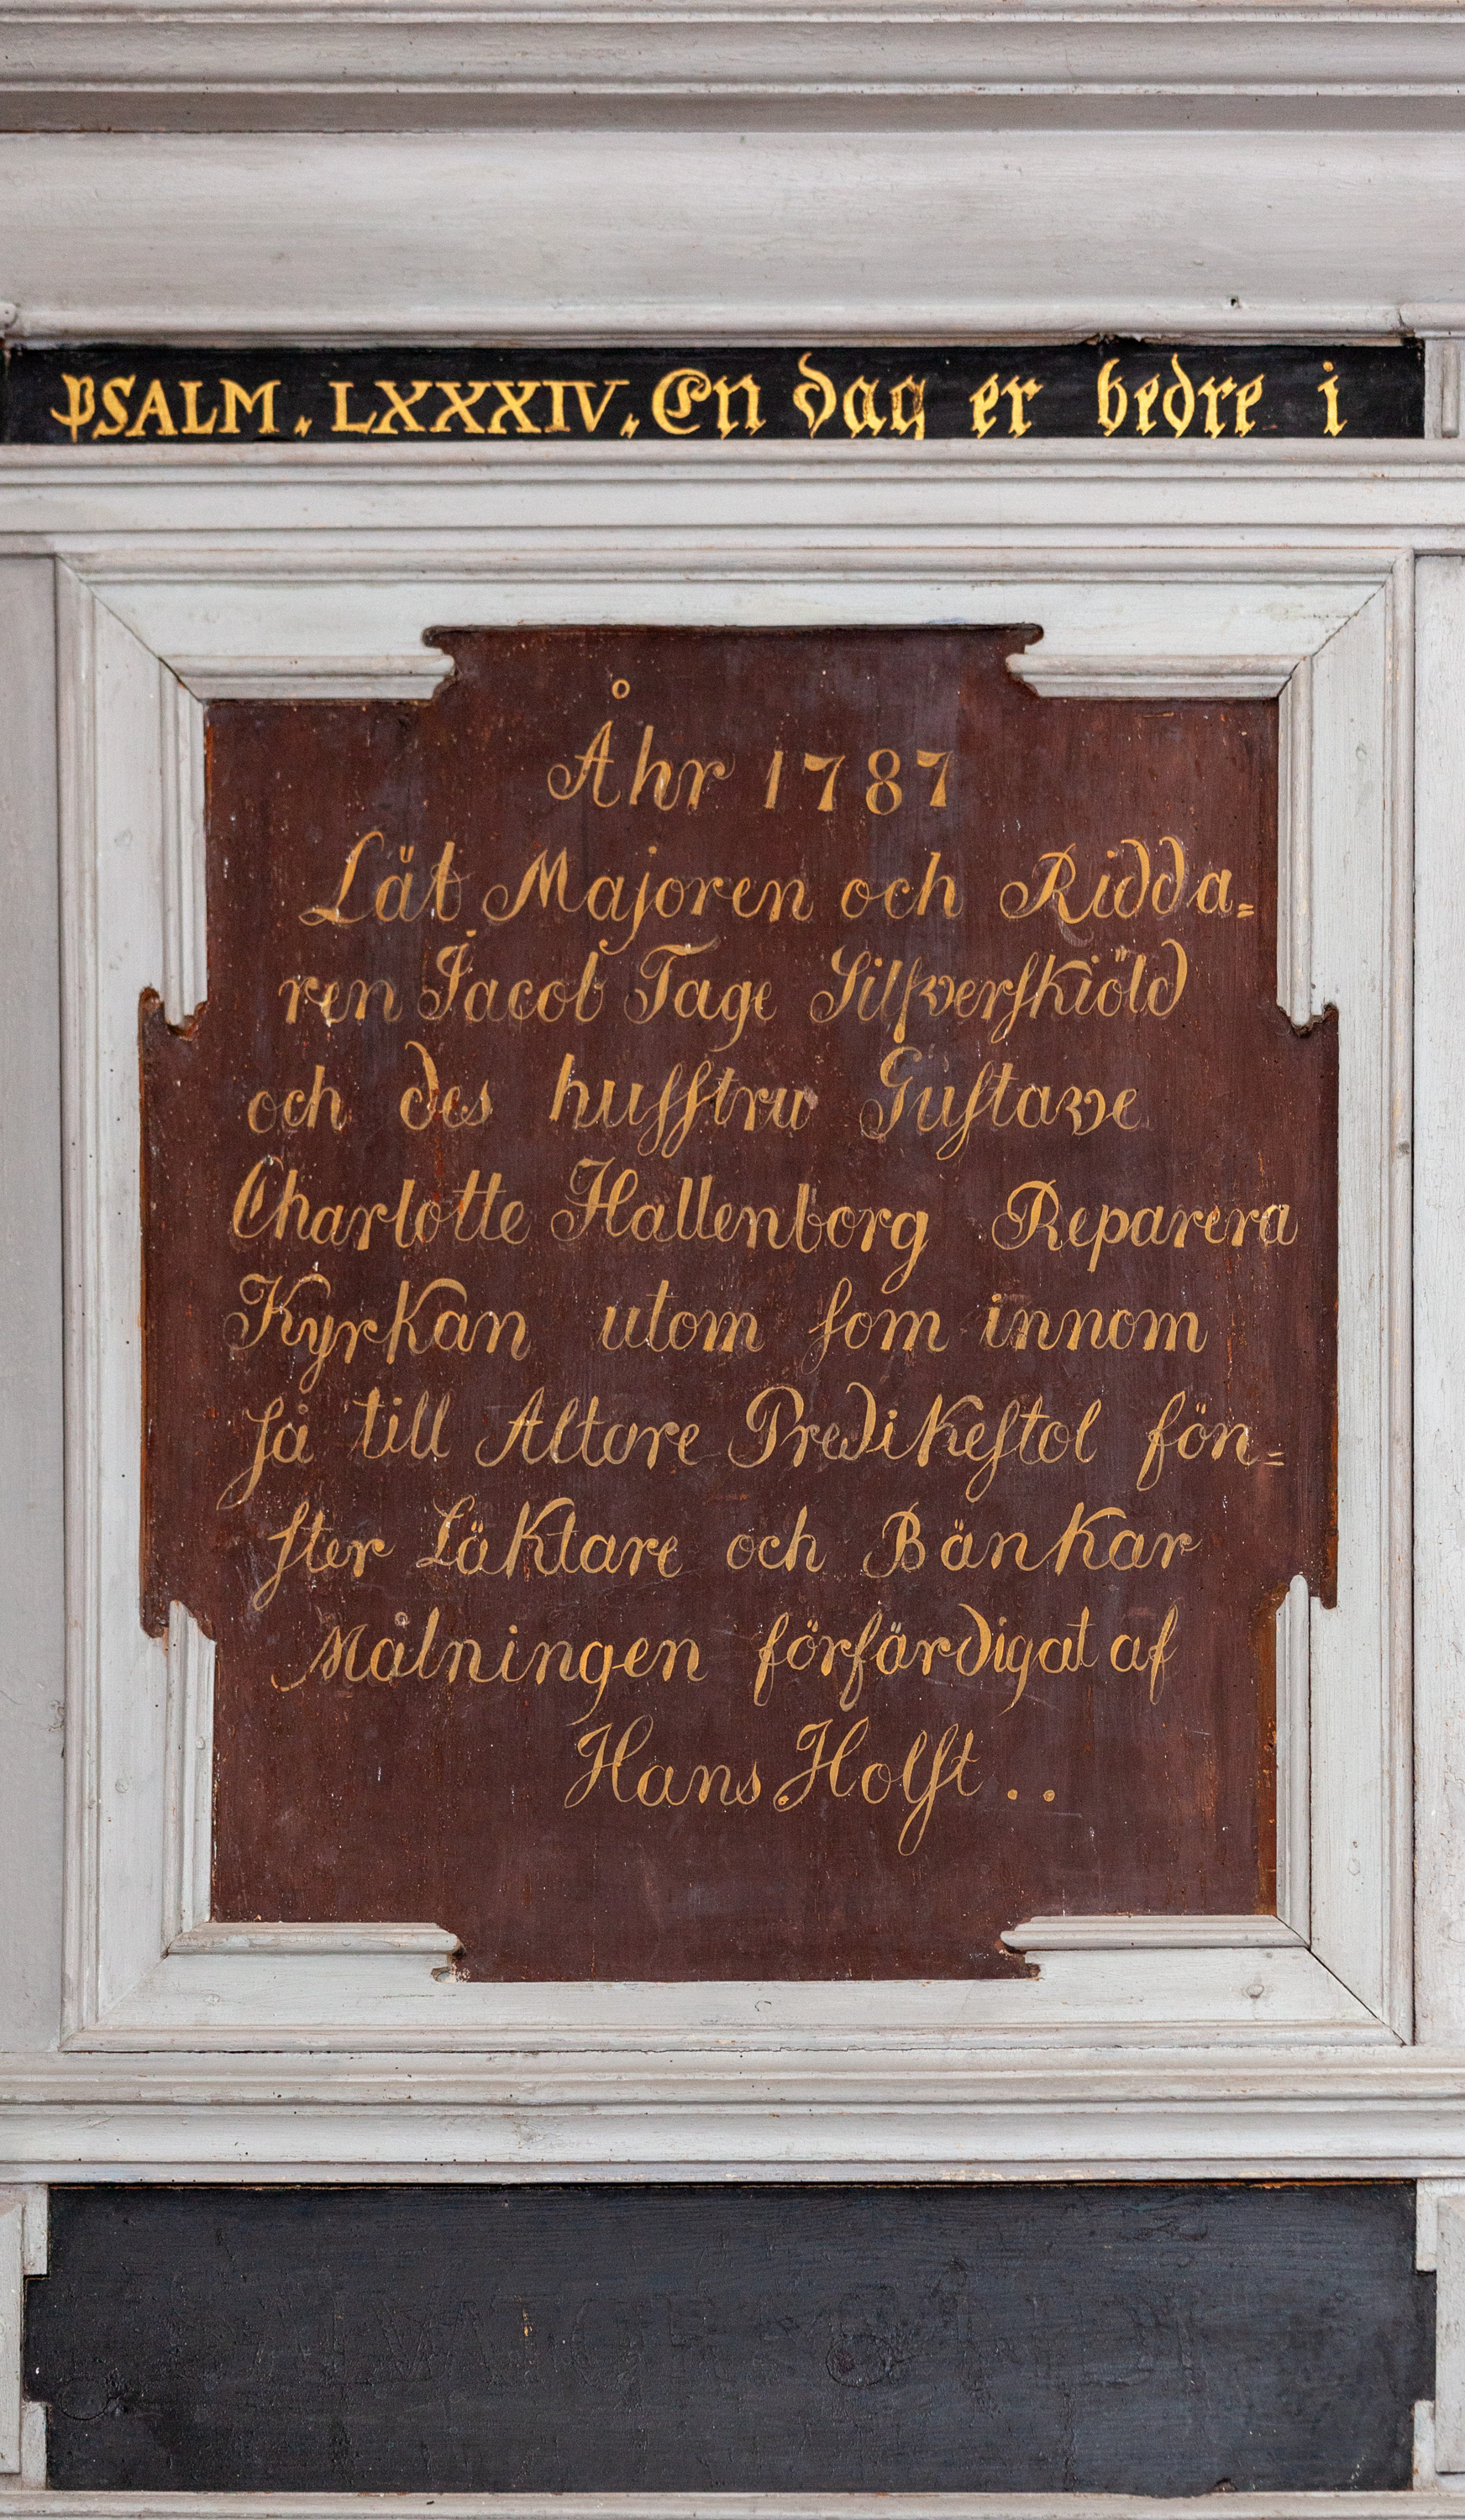 PSALM. LXXXIV. En dag er bedre i
Åhr 1787
Lät Majoren och Ridda=
ren Jacob Tage Silfverſkiöld
och des huſſtru Guſtave
Charlotte Hallenborg Reparera
Kyrkan utom ſom innom
ſå till Altare Predikeſtol fön=
ſter Läktare och Bänkar
Målningen förfärdigat af
Hans Holſt ..